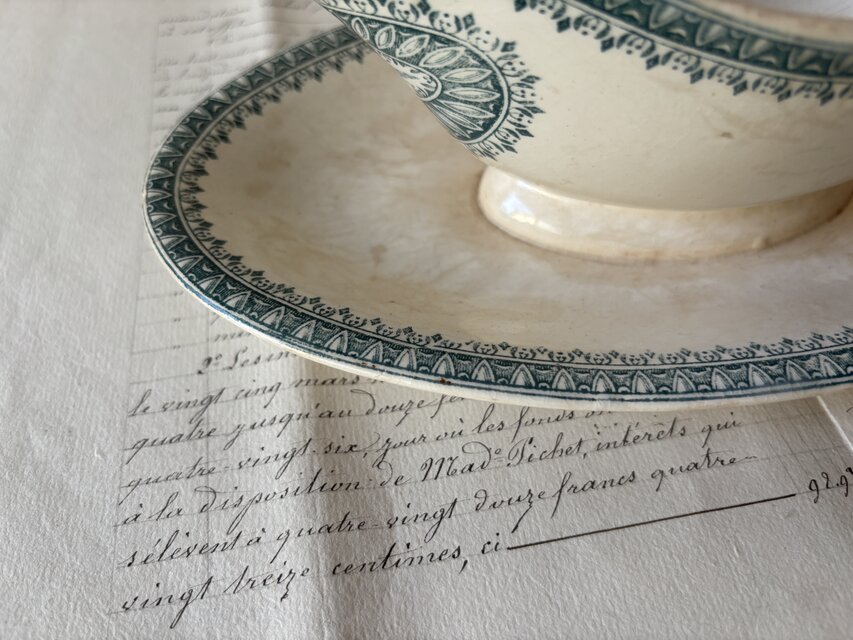 2º Les in
le vingt cinq mars
quatre jusqu'au douze fé
quatre-vingt-six, jour où les fonds on
à la disposition de Made Pichet, intérêts qui
s'élèvent à quatre-vingt douze francs quatre-
vingt treize centimes, ci — 92.9